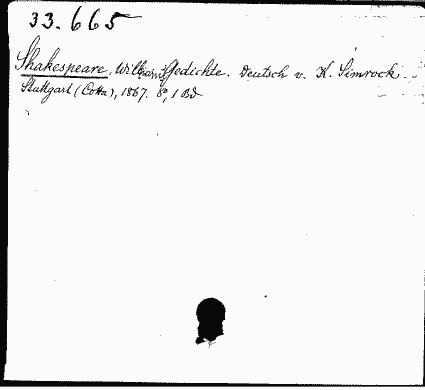 33.665
Shakespeare, William, Gedichte. Deutsch v. K. Simrock.
Stuttgart (Cotta), 1867. 8°, 1 Bd